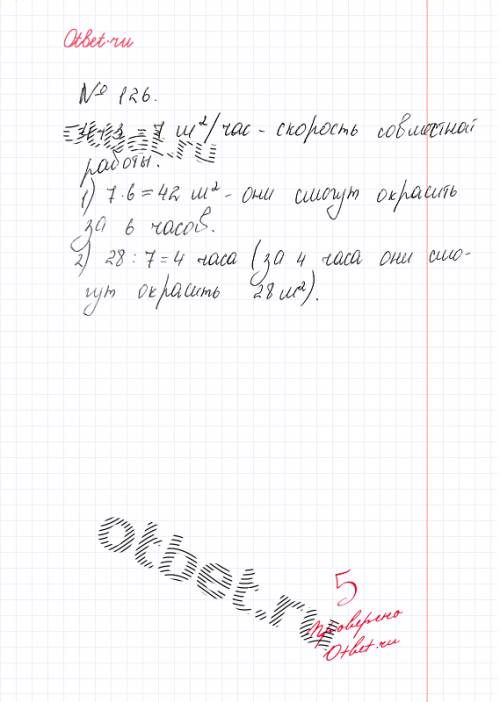 Otbet.ru
№ 126.
= 7 м²/час - скорость совместной
работы.
1) 7·6=42 м² - они смогут окрасить
за 6 часов.
2) 28 : 7 = 4 часа (за 4 часа они смо-
гут окрасить 28 м²).
otbet.ru
otbet.ru
5
Проверено
Otbet.ru